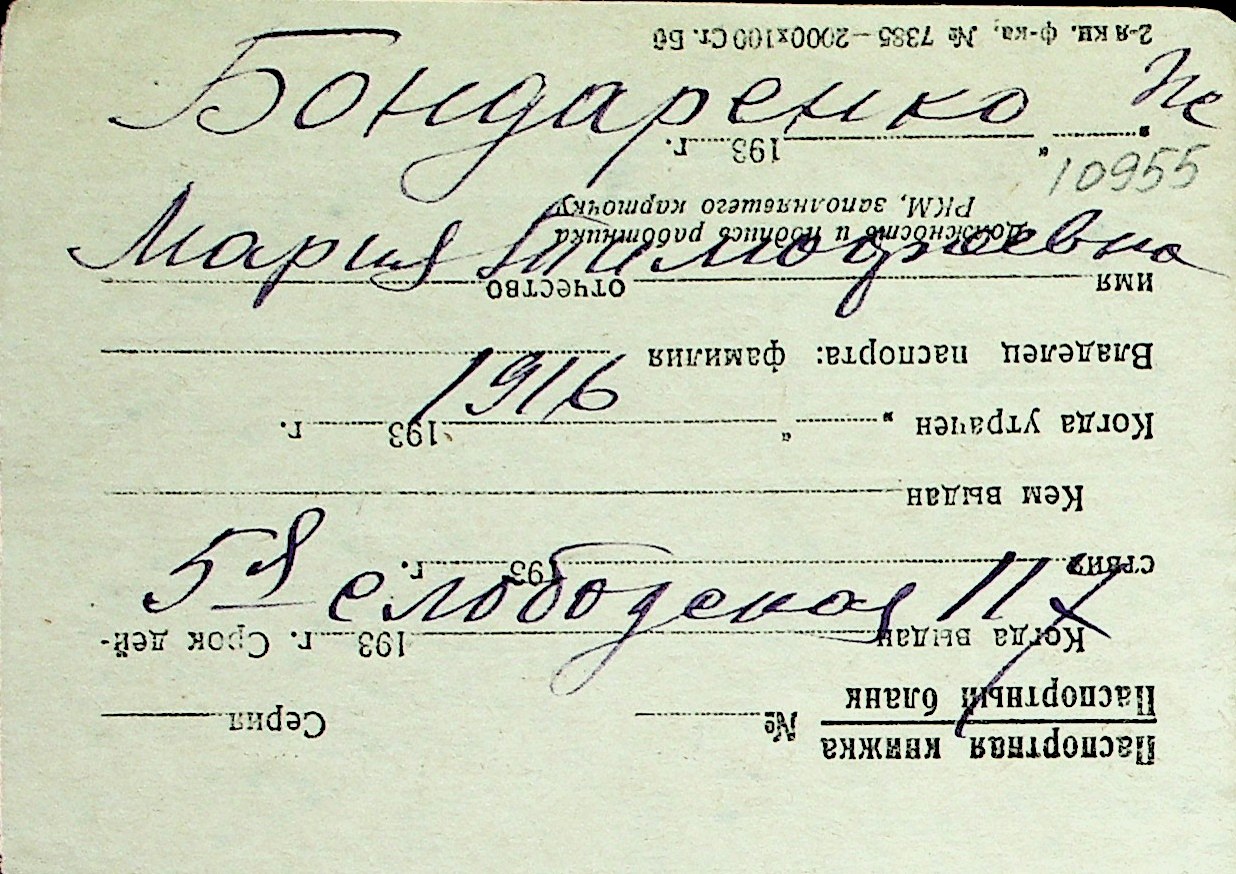 Бондаренко
10955
Мария Тимофеевна
1916
5я Слободская 117
Паспортная книжка
Паспортный бланк № Серия
Когда выдан 193 г. Срок дей-
ствия 193 г.
Кем выдан
Когда утрачен „ “ 193 г.
Владелец паспорта: фамилия
имя отчество
Должность и подпись работника
РКМ, заполнявшего карточку
„ “ 193 г.
2-я кн. ф-ка, № 7385—2000х100 Ст. Бб